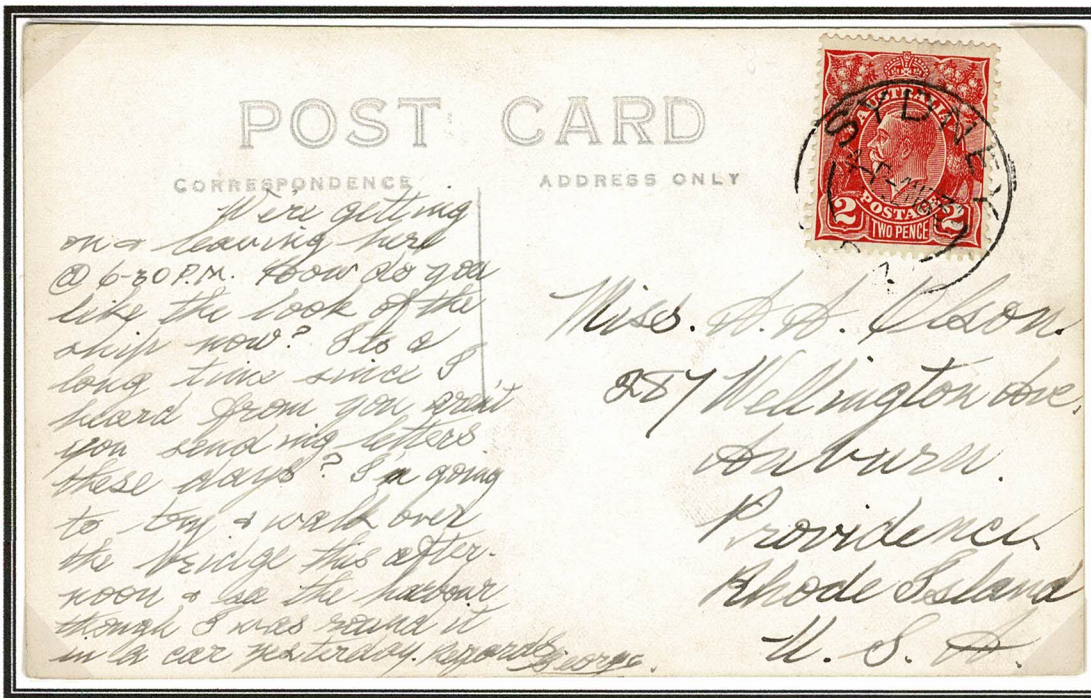 POST CARD
CORRESPONDENCE
ADDRESS ONLY
We're getting
on & leaving here
@ 6-30 P.M. How do you
like the look of the
ship now? Its a
long time since I
heard from you aren't
you sending letters
these days? I'm going
to try & walk over
the bridge this after-
noon & see the harbour
though I was round it
in a car yesterday. Regards George.
SYDNEY
AUSTRALIA
2 POSTAGE 2
TWO PENCE
Miss. A. A. Olson.
287 Wellington Ave,
Auburn.
Providence
Rhode Island
U. S. A.